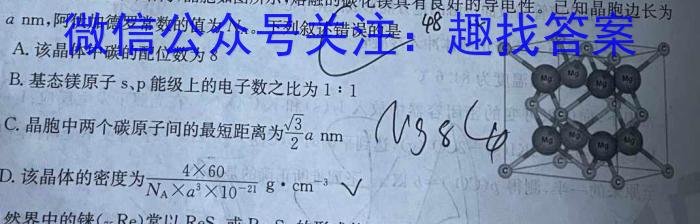 好的导电性。已知晶胞边长为
a nm,阿伏加德罗常数的值为N_A。下列叙述错误的是
48
微信公众号关注：趣找答案
A. 该晶体中碳的配位数为8
B. 基态镁原子 s、p 能级上的电子数之比为 1∶1
C. 晶胞中两个碳原子间的最短距离为√3/2 a nm
Mg8C4
D. 该晶体的密度为 4×60/(N_A×a³×10⁻²¹) g·cm⁻³ ✓
C C C C
Mg Mg Mg Mg
Mg Mg Mg Mg
然界中的铼(Re)常以 ReS₂ 或